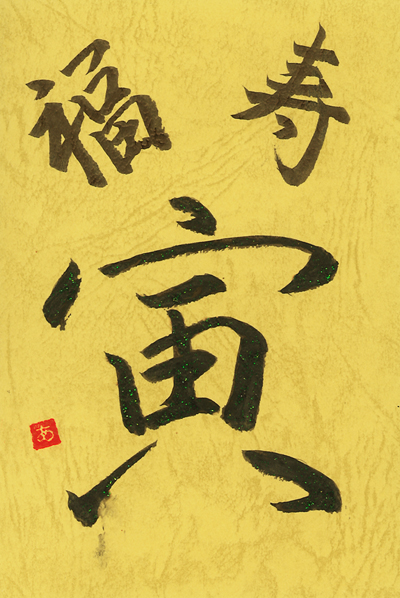 福 寿
寅
あ